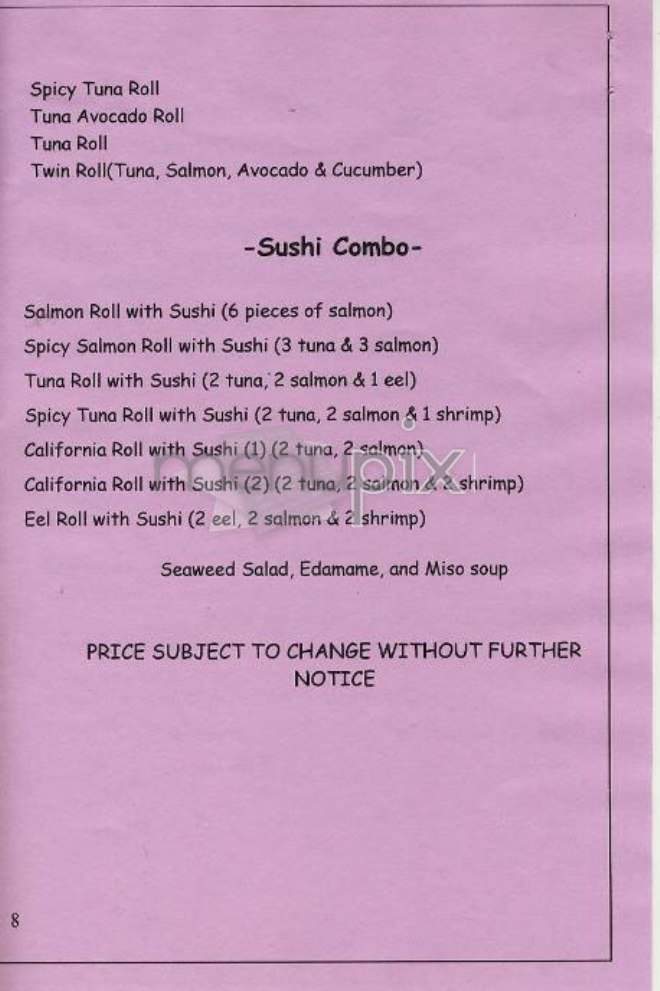 Spicy Tuna Roll
Tuna Avocado Roll
Tuna Roll
Twin Roll(Tuna, Salmon, Avocado & Cucumber)
-Sushi Combo-
Salmon Roll with Sushi (6 pieces of salmon)
Spicy Salmon Roll with Sushi (3 tuna & 3 salmon)
Tuna Roll with Sushi (2 tuna, 2 salmon & 1 eel)
Spicy Tuna Roll with Sushi (2 tuna, 2 salmon & 1 shrimp)
California Roll with Sushi (1) (2 tuna, 2 salmon)
California Roll with Sushi (2) (2 tuna, 2 salmon & 2 shrimp)
menupix
Eel Roll with Sushi (2 eel, 2 salmon & 2 shrimp)
Seaweed Salad, Edamame, and Miso soup
PRICE SUBJECT TO CHANGE WITHOUT FURTHER
NOTICE
8